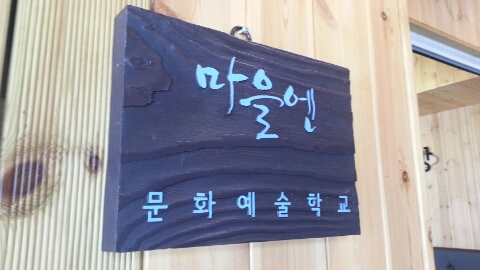 마을엔
문화예술학교